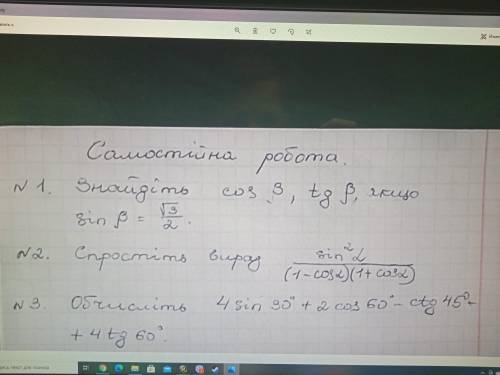 Самостійна робота.
N 1. Знайдіть cos β, tg β, якщо
sin β = √3/2.
N2. Спростіть вираз sin²α/((1-cosα)(1+cosα))
N 3. Обчисліть 4 sin 90° + 2 cos 60° - ctg 45° -
+ 4 tg 60°.